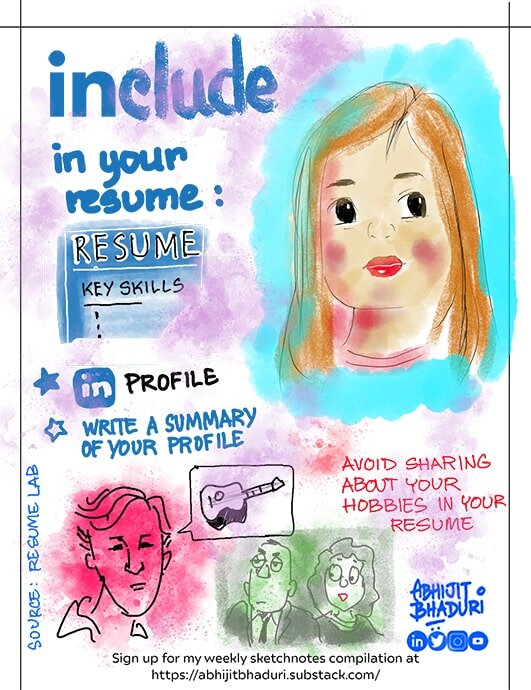 include
in your
resume :
RESUME
KEY SKILLS
in PROFILE
WRITE A SUMMARY
OF YOUR PROFILE
SOURCE: RESUME LAB
AVOID SHARING
ABOUT YOUR
HOBBIES IN YOUR
RESUME
ABHIJIT
BHADURI
in
Sign up for my weekly sketchnotes compilation at
https://abhijitbhaduri.substack.com/